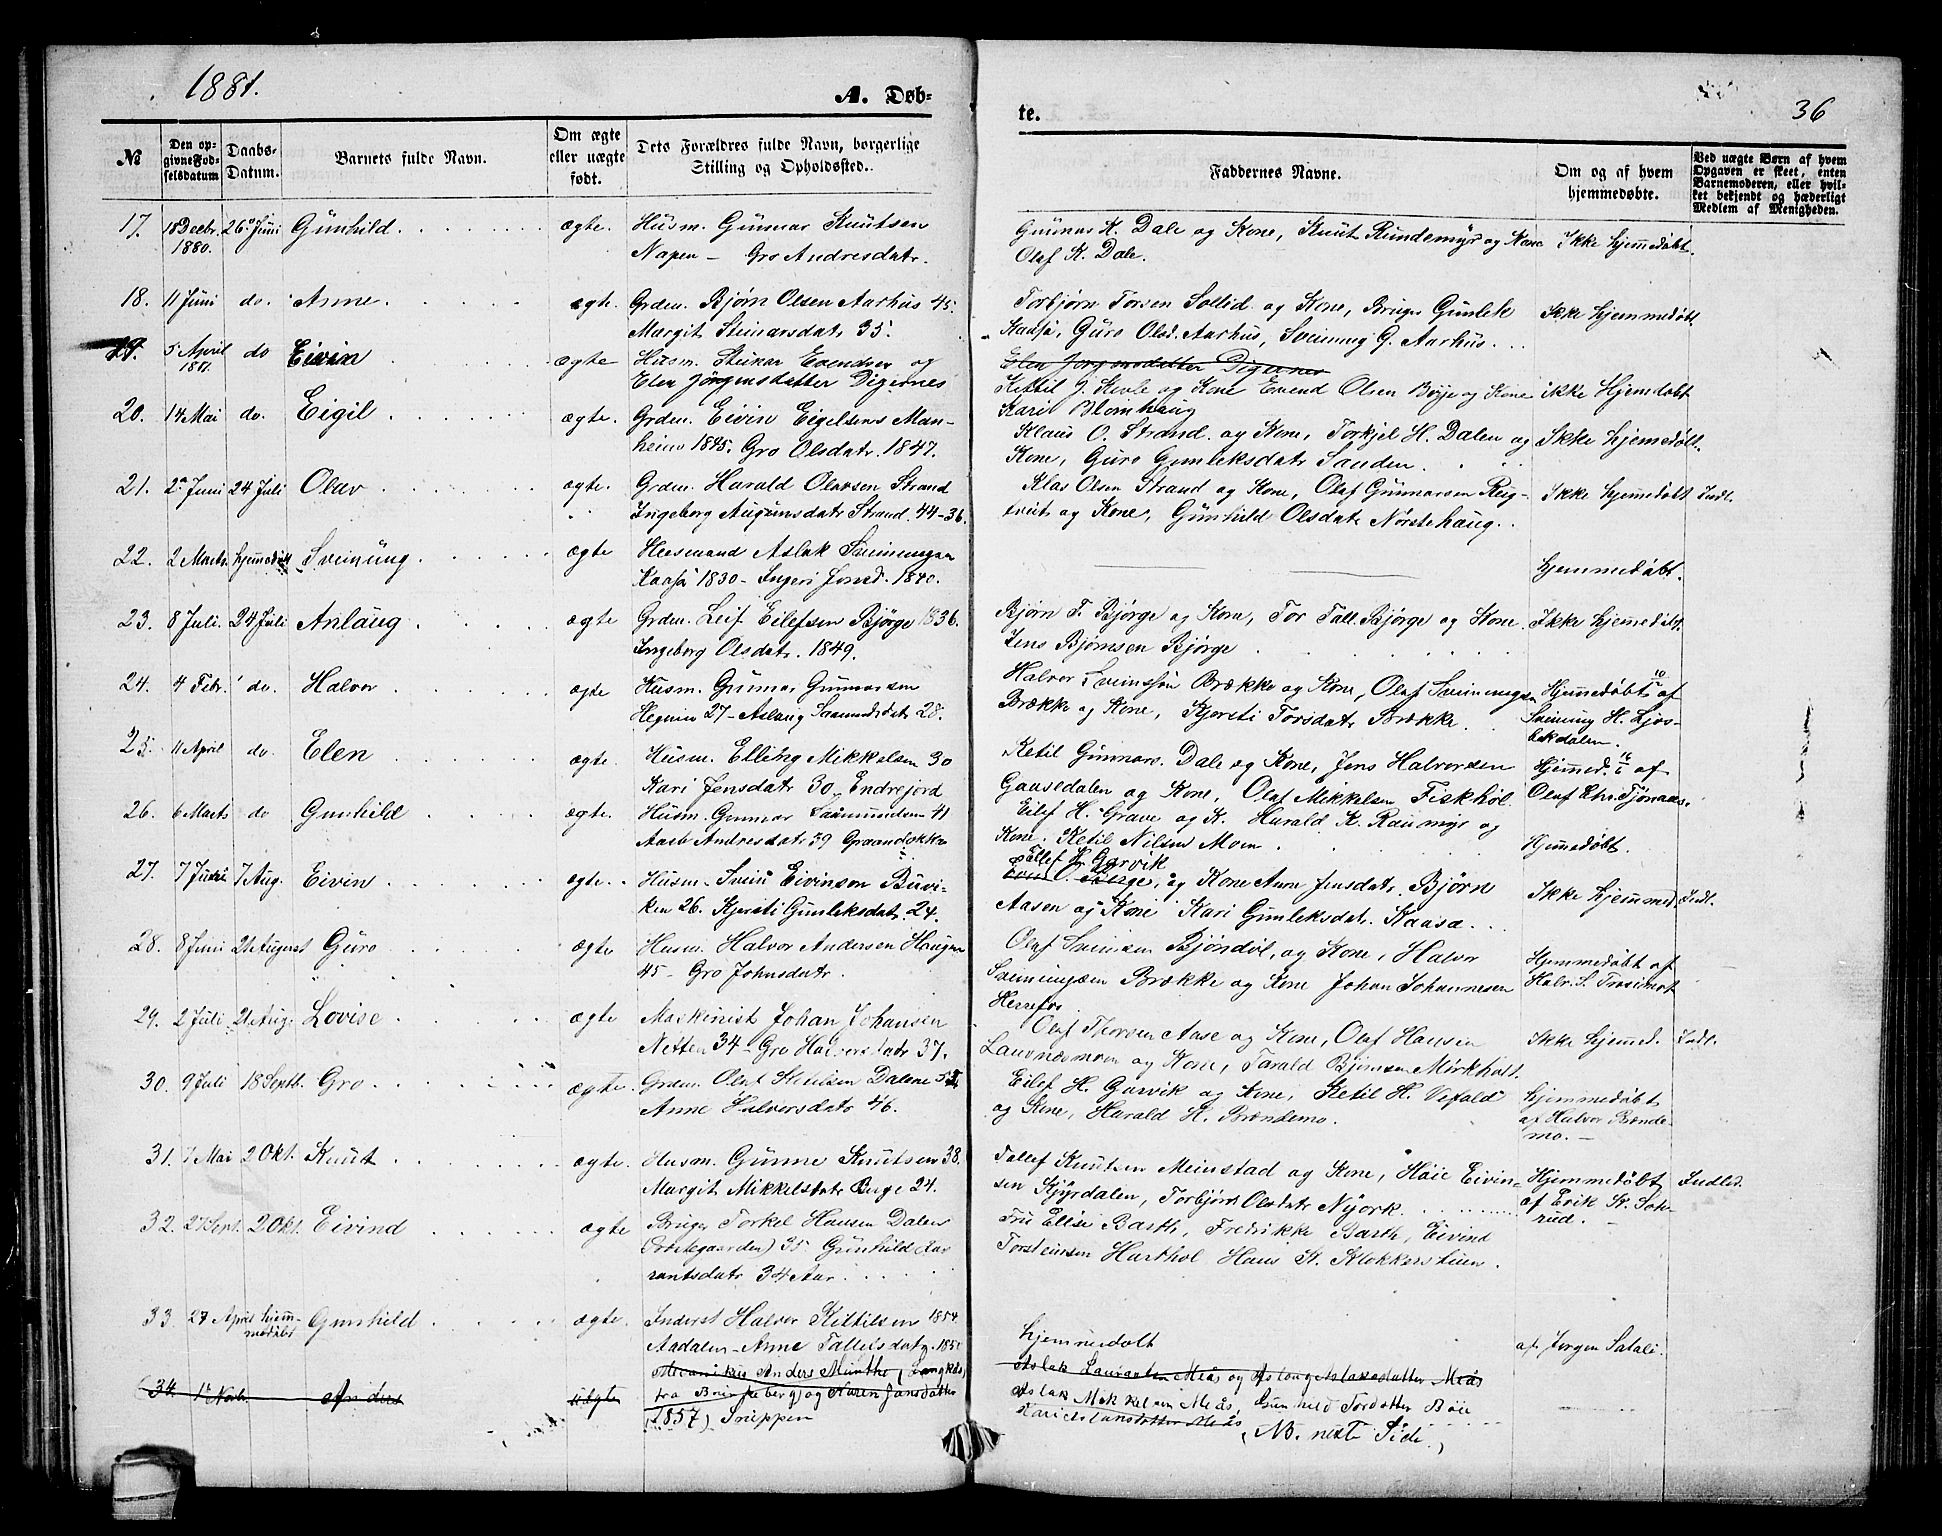 1881.
A. Døb-
te.
36
№
Den op-
givne Fød-
selsdatum
Daabs-
Datum.
Barnets fulde Navn.
Om ægte
eller uægte
født.
Dets Forældres fulde Navn, borgerlige
Stilling og Opholdssted.
Faddernes Navne.
Om og af hvem
hjemmedøbte.
Ved uægte Børn af hvem
Opgaven er skeet, enten
Barnemoderen, eller hvil-
ket bekjendt og hæderligt
Medlem af Menigheden.
17. 18 Decbr. 1880. 26 Juni Gunhild ægte. Husm. Gunnar Knutsen
Napen – Gro Andresdatr.
Gunnar K. Dale og Kone, Knut Rundemyr og Kone
Olaf K. Dale.
Ikke hjemmedøbt.
18. 11 Juni do. Anne ægte. Grdm. Bjørn Olsen Aarhus 45.
Margit Steinarsdatr 35.
Torbjørn Torsen Sollid og Kone, Bruger Gunlek
Kaasa, Guro Olsd. Aarhus, Sveinung G. Aarhus.
Ikke hjemmedøbt.
19. 5 April 1881. do Eivin ægte Husm. Steinar Evendsen og
Elen Jörgensdatter Digernes
Elen Jörgensdatter Digernes
Kettil J. Kevle og Kone Evend Olsen Böje og Kone
Kari Blomhaug
ikke Hjemdøbt
20. 14 Mai do. Eigil ægte. Grdm. Eivin Eigelsens Man-
heim 1845. Gro Olsdatr. 1847.
Klaus O. Strand og Kone, Torkjel H. Dalen og
Kone, Guro Gunleksdatr Sanden.
Ikke hjemmedøbt.
21. 2 Juni 24 Juli Olav ægte. Grdm. Harald Olavsen Strand
Ingeborg Augunsdatr Strand. 44–36.
Klas Olsen Strand og Kone, Olaf Gunnarsen Rug-
tveit og Kone, Gunhild Olsdatr Nørstehaug.
Ikke hjemmedøbt Indl.
22. 2 Marts hjemmedøbt Sveinung ægte Husmand Aslak Sveinungsen
Kaasa 1830 – Ingeri Jonsd. 1840.
Hjemmedøbt.
23. 8 Juli. 24 Juli Anlaug ægte Grdm. Leif Eilefsen Bjørge 1836.
Ingeborg Olsdatr. 1849.
Bjørn T. Bjørge og Kone, Tor Tall. Bjørge og Kone
Jens Bjørnsen Bjørge
Ikke hjemmedøbt.
24. 4 Febr. do. Halvor ægte Husm. Gunnar Gunnarsen
27 – Aslaug 28.
Halvor Sveinssøn Brække og Kone, Olaf Sveinungsen
Brække og Kone, Kjersti Torsdatr Brække.
Hjemmedøbt af
Sveinung H. Ljos-
bekdalen.
25. 11 April do Elen ægte. Husm. Elling Mikkelsen 30
Kari Jensdatr 30 Endrejord
Ketil Gunnars. Dale og Kone, Jens Halvorsen
Gaasedalen og Kone, Olaf Mikkelsen Fiskhøl.
Hjemmed. af
Olaf Chr. Tjønaas.
26. 6 Marts do Gunhild ægte. Husm. Gunnar Saamundsen 41
Aasb Andresdatr 39
Eilef H. Grave og K. Harald K. Raumyr og
Kone. Ketil Nilsen Moen
Hjemmedøbt.
27. 7 Juni 7 Aug. Eivin ægte. Husm. Svein Eivinson Buvi-
ken 26. Kjersti Gunleksdatr. 24.
Tallef K. Garvik
O. Berge, og Kone Anne Jensdatr. Bjørn
Aasen og Kone Kari Gunleksdatr. Kaasa.
Ikke hjemmed. Indl.
28. 8 Juni 21 August Guro ægte Husm. Halvor Andersen Haugen
45 – Gro Johnsdatr.
Olaf Sveinsen Bjøndøl, og Kone, Halvor
Sveinungsen Brække og Kone Johan Johannesen
Herrefos
Hjemmedøbt af
Halv. S.
29. 2 Juli 21 Aug. Lovise ægte Maskinist Johan Johansen
Netten 34 – Gro Halvorsdatr 37.
Olaf Thorsen Aase og Kone, Olaf Hansen
Laurnesmoen og Kone, Tarald Bjørnsen Mørkholt.
Ikke hjemmed. Indl.
30. 9 Juli 18 Septb. Gro ægte. Grdm. Olaf Ketilsen Dalene
Anne Halvorsdatr 46.
Eilef H. Garvik og Kone, Ketil H. Vefald
og Kone, Harald H. Brøndemo.
Hjemmedøbt
af Halvor Brønde-
mo. –
31. 7 Mai 2 Okt. Knut ægte. Husm. Gunne Knutsen 38.
Margit Mikkelsdatr 24.
Tallef Knutsen Meinstad og Kone, Høie Eivin-
sen Kjyrdalen, Torbjørn Olsdatr Nyork.
Hjemmedøbt
af Erik St. Søh-
rud. –
Indld.
32. 27 Sept. 2 Okt. Eivind ægte Bruger Torkel Hansen Dalen
35 Gunhild Aar
rantsdatr 34 Aar
Fru Elise Barth, Fredrikke Barth, Eivind
Torsteinsen Harthol Hans St. Klokkerstuen.
33. 27 April hjem-
medøbt Gunhild ægte. Inderst Halvor Kittilsen 1854.
Aadalen – Anne Tallefsdatr.
hjemmedøbt
af Jørgen Satali.
34. 1 Novb. Anders uægte Anders Munthe,
fra og Karen Jansdatter
(1857) Snippen
Aslak Lauransen Meås og Aslaug Aslaksdatter Meås
Aslak Mikkelsen Meås, Gunhild Tordatter Böie
Meås
(NB. neste Side.)